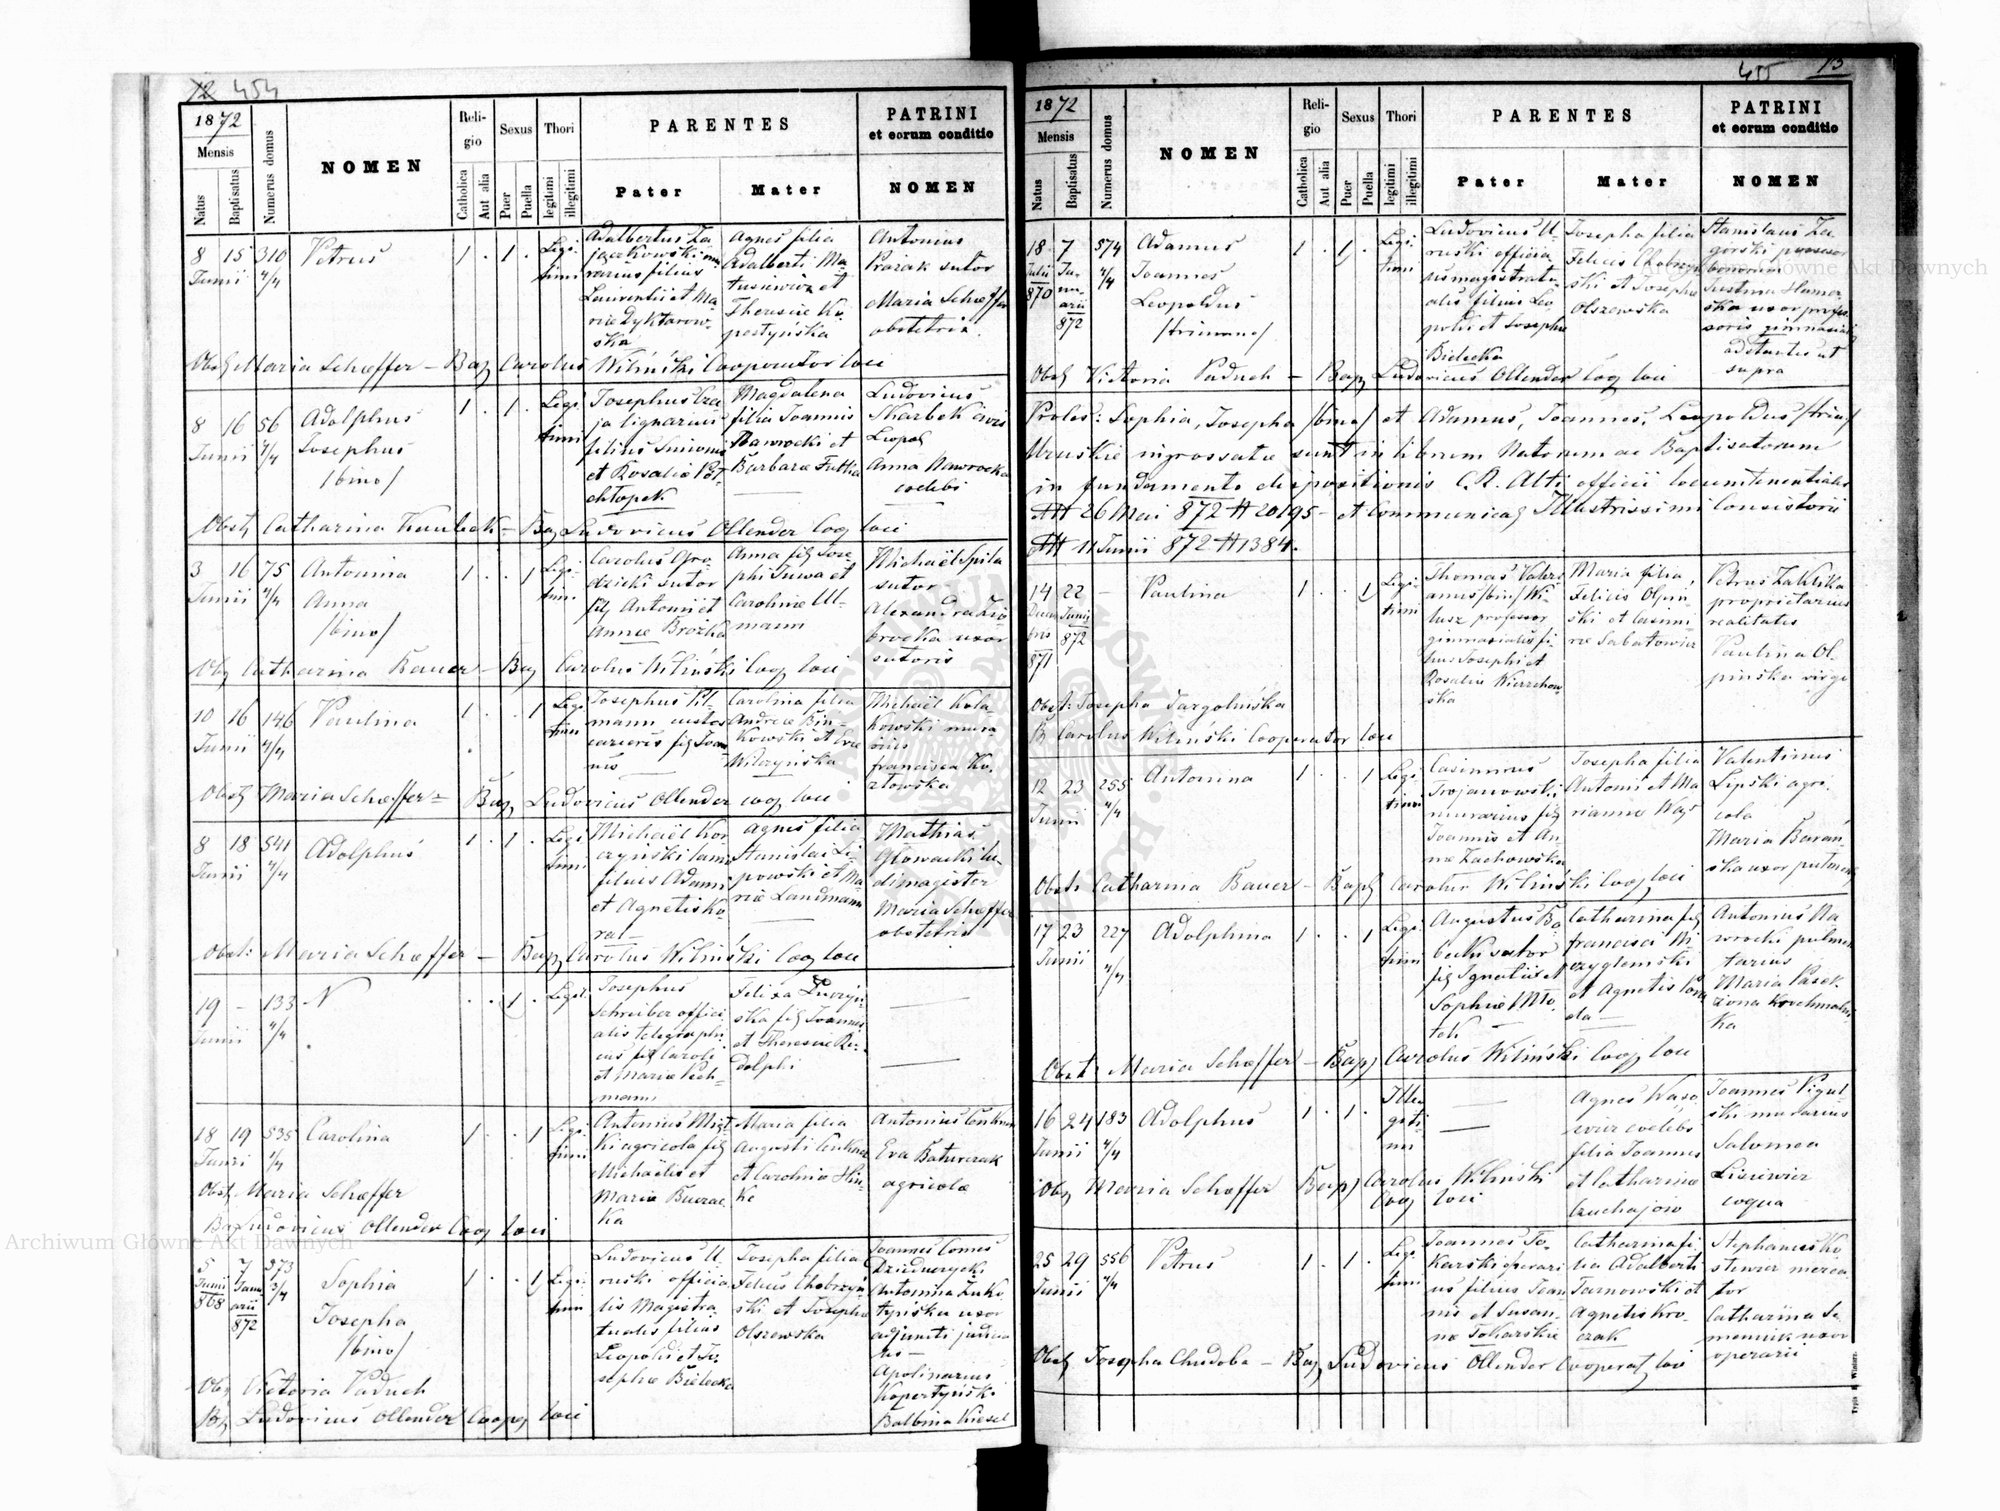 12 454
1872
Mensis
Natus
Baptisatus
Numerus domus
NOMEN
Religio
Catholica
Aut alia
Sexus
Puer
Puella
Thori
legitimi
illegitimi
PARENTES
Pater
Mater
PATRINI
et eorum conditio
NOMEN
8 15 310
Junii 4/4
Petrus
1 . 1 .
Legi-
timi
Adalbertus
filius
Laurentii et Ma-
riae Dyktarow-
ska
Agnes filia
Adalberti Ma-
tusiewicz et
Theresiae Ko-
pertyńska
Antonius
Prażak sutor
Maria Schæffer
obstetrix.
Obst Maria Schæffer – Bap Carolus Wiliński Cooperator loci
8 16 56
Junii 4/4
Adolphus
Josephus
/bino/
1 . 1 .
Legi-
timi
Josephus Cza-
ja lignarius
filius Simonis
et Rosaliæ Pot-
chłopek
Magdalena
filia Joannis
Nawrocki et
Barbaræ Futtia
Ludovicus
Skarbek civis
Leopol
Anna Nawrocka
coelebs
Obst Catharina Kaubek – Bap Ludovicus Ollender Coop loci
3 16 75
Junii 4/4
Antonina
Anna
/bino/
1 . . 1
Legi-
timi
Carolus Gro-
dzicki sutor
fil Antonii et
Annæ Brożka
Anna fil Jose-
phi Juwa et
Carolinæ Ul-
mann
Michaël Spila
sutor
Alexandra Dio-
brocka uxor
sutoris
Obst Catharina Bauer – Bap Carolus Wiliński Coop loci
10 16 146
Junii 4/4
Paulina
1 . . 1
Legi
timi
Josephus Pil-
mann custos
carceris fil Joan-
nis
Carolina filia
Andreæ Bin-
kowski et Evæ
Wilczyńska
Michaël Kola-
kowski mura-
rius
Francisca Ko-
złowska
Obst Maria Schæffer – Bap Ludovicus Ollender coop loci
8 18 541
Junii 4/4
Adolphus
1 . 1 .
Legi
timi
Michaël Kor-
czyński
filius Adami
et Agnetis Ko-
ra
Agnes filia
Stanislai Li-
powski et Ma-
riæ Landmann
Mathias
Głowacki lu-
dimagister
Maria Schæffer
obstetrix
Obst: Maria Schæffer – Bap Carolus Wiliński Coop loci
19 – 133
Junii 4/4
N
. . 1 .
Legit.
Josephus
Schreiber offici-
alis telegraphi-
cus fil Caroli
et Mariæ Pech-
mann
Felixa Luczyń-
ska fil Joannis
et Theresiæ Ru-
dolphi
18 19 535
Junii 4/4
Carolina
1 . . 1
Legi
timi
Antonius
agricola fil
Michaëlis et
Maria Burza-
ka
Maria filia
Augusti Cenkner
et Carolinæ Hin-
ke
Antonius Cenkner
Eva Baturczak
agricolæ
Obst. Maria Schæffer
Bap Ludovicus Ollender Coop loci
5 7 373
Junii Janu- 3/4
868 arii
872
Sophia
Josepha
/bino/
1 . . 1
Legi
timi
Ludovicus U-
ruski officia-
lis Magistra-
tualis filius
Leopoldi et Jo-
sephæ Bielecka
Josepha filia
Felicis Chobrzyń-
ski et Josepha
Olszewska
Joannes Comes
Dzieduszycki
Antonina Łuko-
tyńska uxor
adjuncti judicia-
lis –
Apolinarius
Kopertyński
Balbina Kiesel
Obst Victoria Paduch
Bap Ludovicus Ollender Coop loci
455 13
1872
Mensis
Natus
Baptisatus
Numerus domus
NOMEN
Religio
Catholica
Aut alia
Sexus
Puer
Puella
Thori
legitimi
illegitimi
PARENTES
Pater
Mater
PATRINI
et eorum conditio
NOMEN
18 7 574
Julii Ja- 4/4
870 nu-
arii
872
Adamus
Joannes
Leopoldus
/trimone/
1 . 1 .
Legi-
timi
Ludovicus U-
ruski officia-
lis magistratu-
alis filius Leo-
poldi et Josephæ
Bielecka
Josepha filia
Felicis Chobrzyń-
ski et Josepha
Olszewska
Stanislaus Za-
górski possesor
bonorum
Justina Hamer-
ska uxor profes-
soris gimnasial
adstantes ut
supra
Obst Victoria Paduch – Bap Ludovicus Ollender Coop loci
Proles: Sophia, Josepha /bino/ et Adamus, Joannes, Leopoldus /trin/
Uruskie ingrossatæ sunt in librum Natorum ac Baptisatorum
in fundamento dispositionis C.R. Alti officii locumtenentialis
dtt 26 Mai 872 # 20195 – et communicat Illustrissimi Consistorii
dtt 11 Junii 872 # 1384.
14 22 –
Decem- Junii
bris 872
871
Paulina
1 . . 1
Legi-
timi
Thomas Valeri-
anus /bin/ Wi-
lusz professor
gimnasialis fi-
lius Josephi et
Rosaliæ Wierzchow-
ska
Maria filia
Felicis Olpiń-
ski et Casimi-
ræ Sabatowicz
Petrus Zaklika
proprietarius
realitatis
Paulina Ol-
pińska virgo
Obst: Josepha Targolińska
B Carolus Wiliński Cooperator loci
12 23 255
Junii 4/4
Antonina
1 . . 1
Legi
timi
Casimirus
Trojanowski
murarius fil
Joannis et An-
næ Zachowska
Josepha filia
Antonii et Ma-
riannæ Wąs
Valentinus
Lipski agri-
cola
Maria Barań-
ska uxor pulment
Obst: Catharina Bauer – Bapt Carolus Wiliński Coop loci
17 23 227
Junii 4/4
Adolphina
1 . . 1
Legi
timi
Augustus Bą-
becki sator
fil Ignatii et
Sophiæ Mło-
tek
Catharina fil
Francisci Ni-
czyglemski
et Agnetis
Antonius Na-
wrocki pulmen-
tarius
Maria Pasek
żona Krochmalni-
ka
Obst: Maria Schæffer – Bap Carolus Wiliński Coop loci
16 24 183
Junii 4/4
Adolphus
1 . 1 .
Ille-
giti-
mi
Agnes Waso-
wicz coelebs
filia Joannis
et Catharinæ
Czuchajow
Joannes Pigul-
ski murarius
Salomea
Lisiewicz
coqua
Obst Maria Schæffer Bap Carolus Wiliński
Coop loci
25 29 556
Junii 4/4
Petrus
1 . 1 .
Legi
timi
Joannes To-
karski operari-
us filius Joan-
nis et Susan-
næ Tokarskie
Catharina fi-
lia Adalberti
Tarnowski et
Agnetis Kro-
czak
Stephanus Ko-
stewicz merca-
tor
Catharina Se-
meniuk uxor
operarii
Obst Josepha Chudoba – Bap Ludovicus Ollender Cooperat loci
Archiwum Główne Akt Dawnych
Archiwum Główne Akt Dawnych